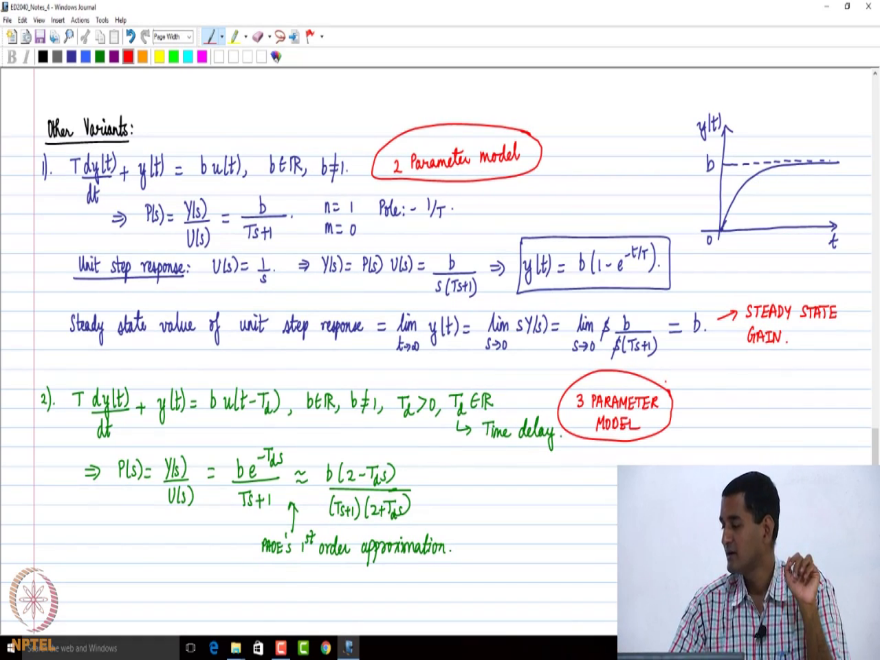 ED2040_Notes_4 - Windows Journal
File Edit View Insert Actions Tools Help
Page Width
B I
Other Variants:
1). T dy(t)/dt + y(t) = b u(t), b∈ℝ, b≠1.
2 Parameter model
⇒ P(s) = Y(s)/U(s) = b/(Ts+1). n=1 Pole:- 1/T.
m=0
Unit step response: U(s) = 1/s. ⇒ Y(s) = P(s) U(s) = b/(s(Ts+1)) ⇒ y(t) = b(1-e^{-t/T}).
y(t)
b
0
t
Steady state value of unit step response = lim_{t→∞} y(t) = lim_{s→0} sY(s) = lim_{s→0} s b/(s(Ts+1)) = b. → STEADY STATE
GAIN.
2). T dy(t)/dt + y(t) = b u(t-T_d), b∈ℝ, b≠1, T_d>0, T_d∈ℝ
↳ Time delay.
3 PARAMETER
MODEL
⇒ P(s) = Y(s)/U(s) = b e^{-T_d s}/(Ts+1) ≈ b(2-T_d s)/((Ts+1)(2+T_d s))
PADE'S 1st order approximation.
NPTEL
the web and Windows